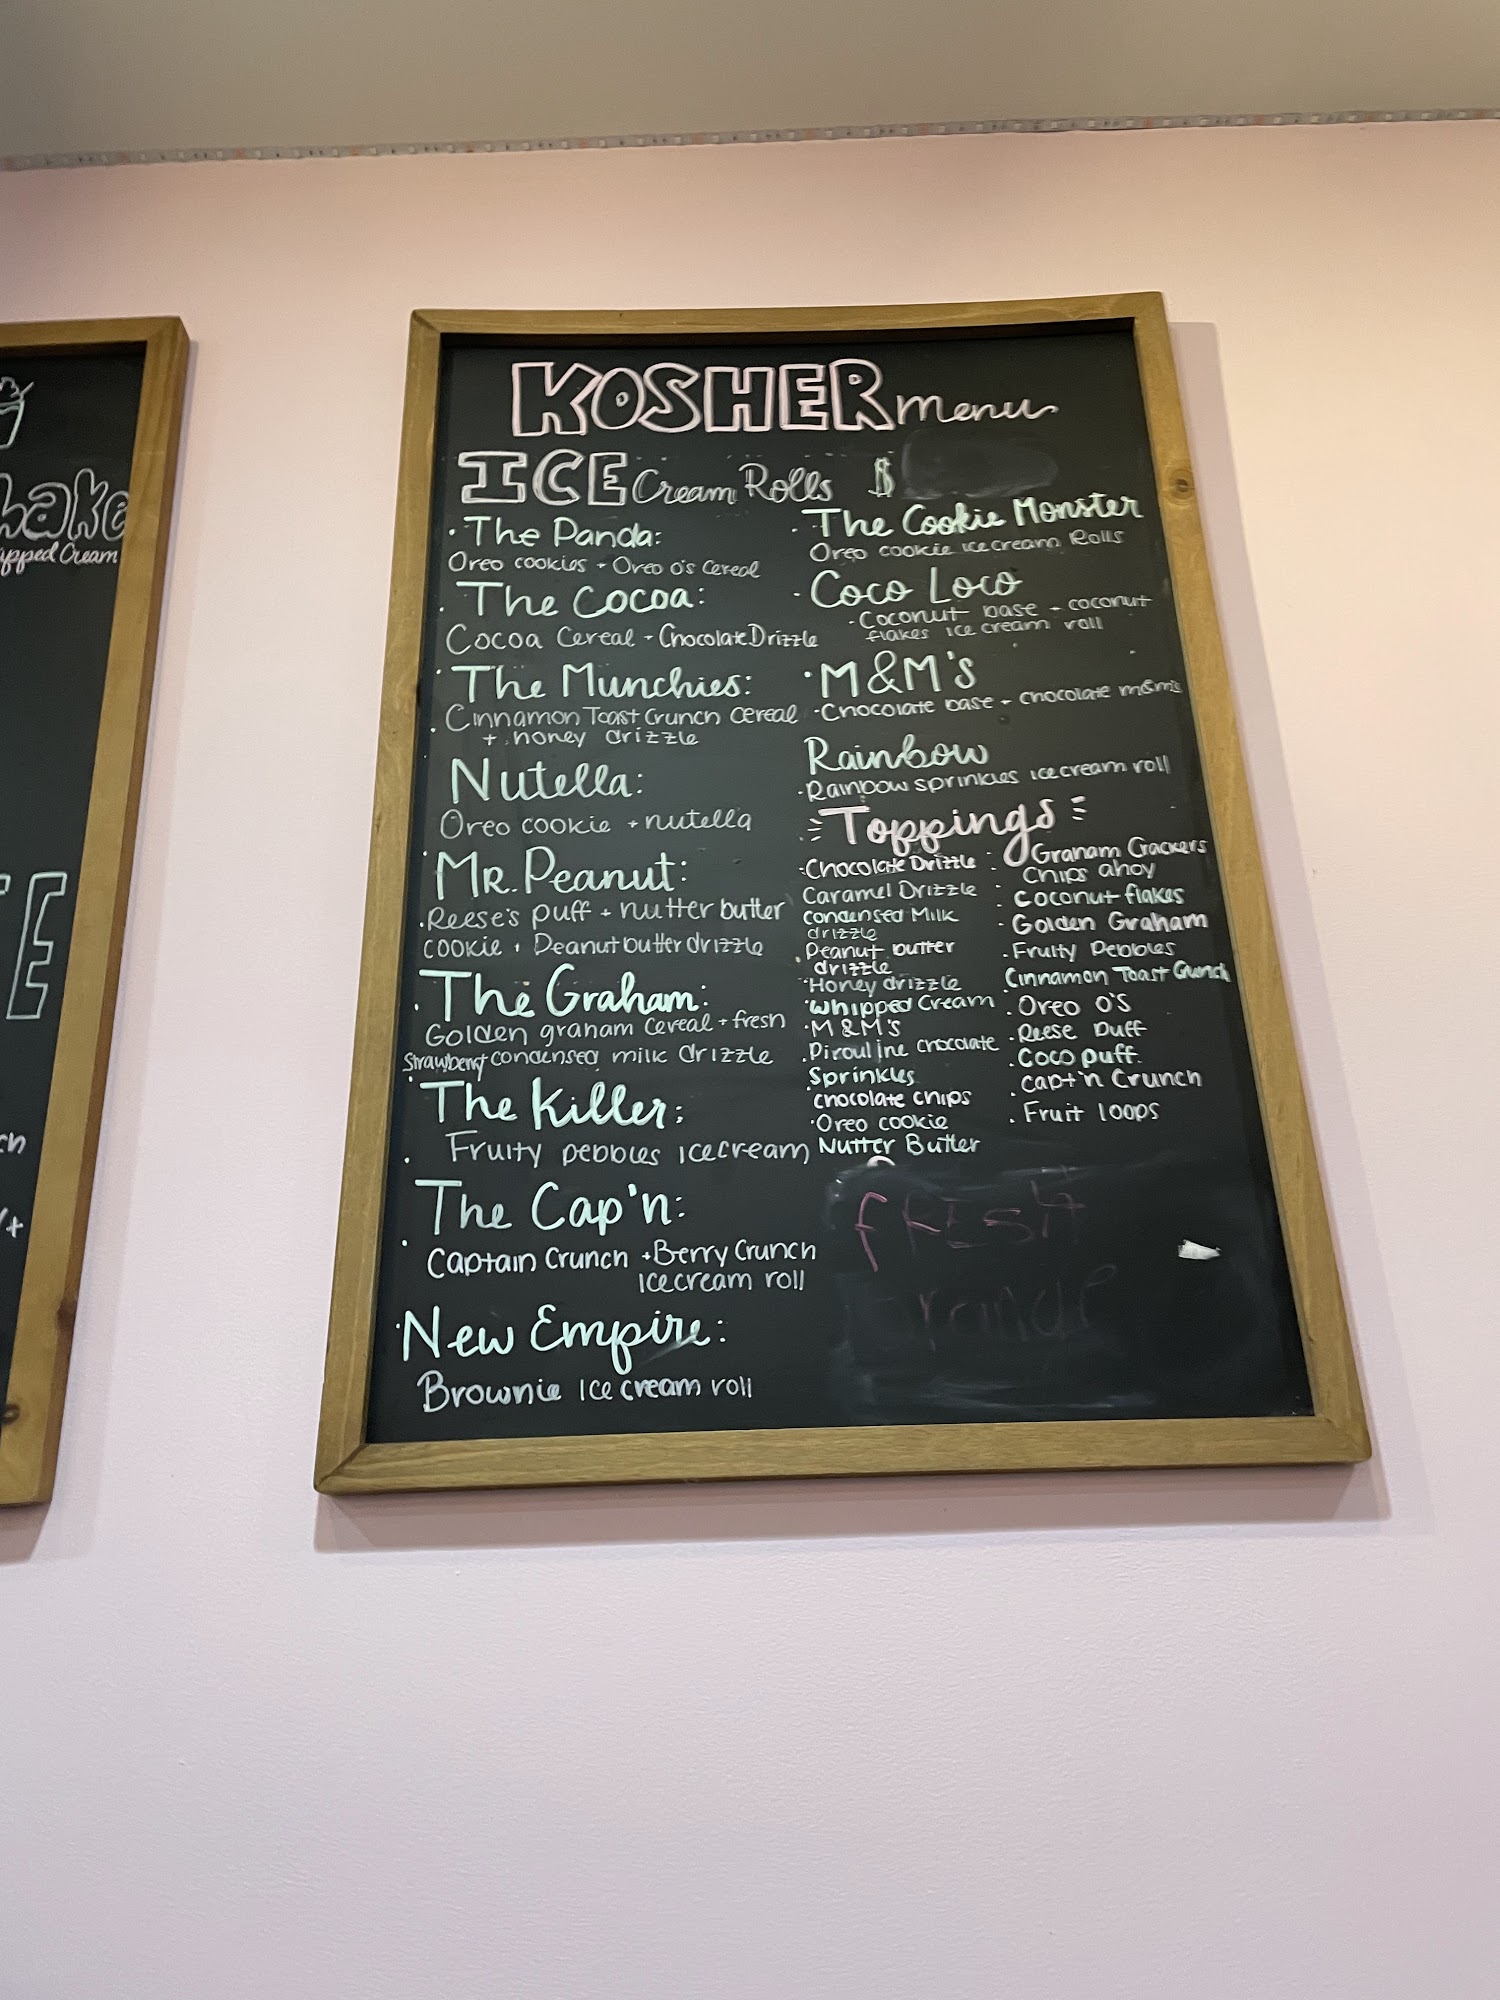 KOSHER menu
ICE Cream Rolls $
· The Panda:
Oreo cookies + Oreo O's Cereal
· The Cocoa:
Cocoa Cereal + Chocolate Drizzle
· The Munchies:
· Cinnamon Toast Crunch cereal
+ honey drizzle
Nutella:
Oreo cookie + nutella
· MR. Peanut:
· Reese's puff + nutter butter
cookie + Peanut butter drizzle
· The Graham:
Golden graham cereal + fresh
strawberry condensed milk drizzle
· The Killer:
· Fruity pebbles icecream
The Cap'n:
· Captain Crunch + Berry Crunch
icecream roll
· New Empire:
Brownie ice cream roll
· The Cookie Monster
Oreo cookie icecream Rolls
· Coco Loco
· Coconut base + coconut
flakes ice cream roll
· M&M's
· Chocolate base + chocolate m&m's
Rainbow
· Rainbow sprinkles icecream roll
Toppings
· Chocolate Drizzle
Caramel Drizzle
condensed Milk
drizzle
· Peanut butter
drizzle
· Honey drizzle
· Whipped Cream
· M&M'S
· Pirouline chocolate
Sprinkles
· chocolate chips
· Oreo cookie
Nutter Butter
· Graham Crackers
· Chips ahoy
· coconut flakes
· Golden Graham
· Fruity Pebbles
Cinnamon Toast Crunch
· Oreo O'S
· Reese Puff
· Coco puff.
· Capt'n Crunch
· Fruit loops
FRESH
hake
ipped Cream
E